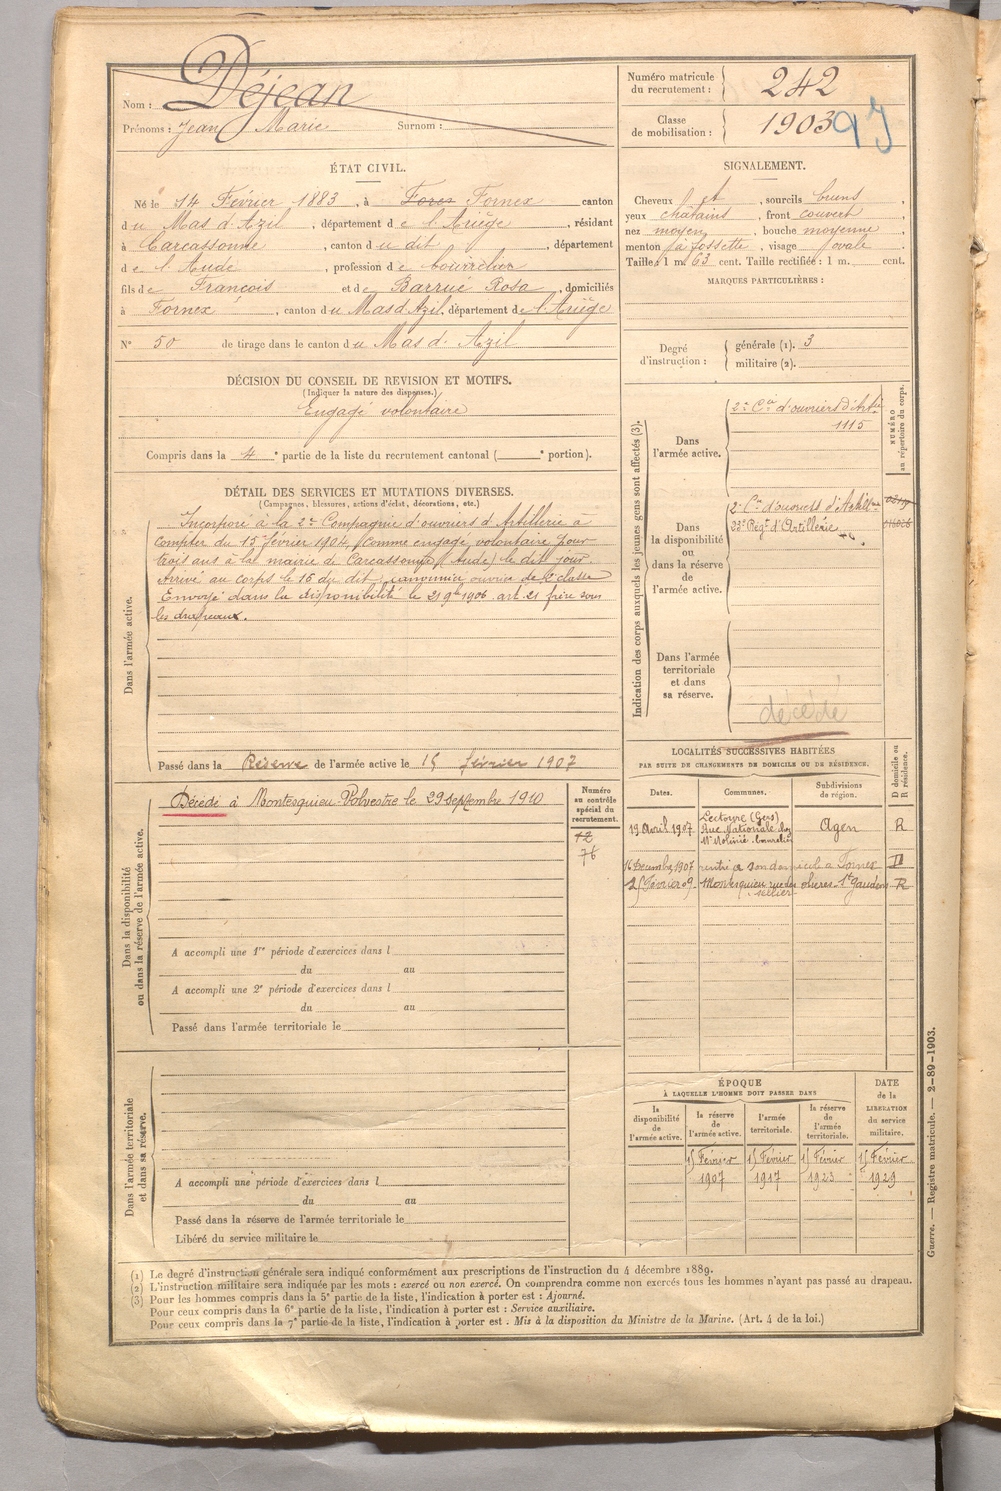 Nom : Déjean
Prénoms : Jean Marie Surnom :
Numéro matricule du recrutement : 242
Classe de mobilisation : 1903
ÉTAT CIVIL.
Né le 14 Février 1883, à Fores Fornex canton
du Mas d'Azil, département de l'Ariège, résidant
à Carcassonne, canton du dit, département
de l'Aude, profession de bourrelier
fils de François et de Barrué Rosa, domiciliés
à Fornex, canton du Mas d'Azil, département de l'Ariège
N° 50 de tirage dans le canton du Mas d'Azil
SIGNALEMENT.
Cheveux et, sourcils bruns,
yeux châtains, front couvert
nez moyen, bouche moyenne
menton à fossette, visage ovale.
Taille : 1 m. 63 cent. Taille rectifiée : 1 m. cent.
MARQUES PARTICULIÈRES :
Degré d'instruction : générale (1). 3
militaire (2).
DÉCISION DU CONSEIL DE REVISION ET MOTIFS.
(Indiquer la nature des dispenses.)
Engagé volontaire
Compris dans la 4e partie de la liste du recrutement cantonal ( e portion).
DÉTAIL DES SERVICES ET MUTATIONS DIVERSES.
(Campagnes, blessures, actions d'éclat, décorations, etc.)
Dans l'armée active.
Incorporé à la 2e Compagnie d'ouvriers d'Artillerie à
compter du 15 février 1904, (comme engagé volontaire pour
trois ans à la mairie de Carcassonne (Aude) le dit jour.
Arrivé au corps le 16 du dit, canonnier ouvrier de 2e classe
Envoyé dans la disponibilité le 21 9bre 1906. art. 21 frère sous
les drapeaux.
Passé dans la Réserve de l'armée active le 15 février 1907
Indication des corps auxquels les jeunes gens sont affectés (3).
NUMÉRO au répertoire du corps.
Dans l'armée active.
2e Cie d'ouvriers d'Artie
1115
Dans la disponibilité ou dans la réserve de l'armée active.
2e Cie d'ouvriers d'Artillerie
23e Régt d'Artillerie
Dans l'armée territoriale et dans sa réserve.
décédé
Dans la disponibilité ou dans la réserve de l'armée active.
Décédé à Montesquieu-Volvestre le 29 septembre 1910
Numéro au contrôle spécial du recrutement.
42
76
A accompli une 1re période d'exercices dans l
du au
A accompli une 2e période d'exercices dans l
du au
Passé dans l'armée territoriale le
LOCALITÉS SUCCESSIVES HABITÉES
PAR SUITE DE CHANGEMENTS DE DOMICILE OU DE RÉSIDENCE.
D domicile ou R résidence.
Dates. Communes. Subdivisions de région.
19 Avril 1907 Lectoure (Gers) Rue Nationale chez Mr Molinié bourrelier Agen R
16 Décembre 1907 rentré à son domicile à Fornex D
25 Février 09. Montesquieu rue des olières St Gaudens R
sellier
Dans l'armée territoriale et dans sa réserve.
A accompli une période d'exercices dans l
du au
Passé dans la réserve de l'armée territoriale le
Libéré du service militaire le
ÉPOQUE
À LAQUELLE L'HOMME DOIT PASSER DANS
la disponibilité de l'armée active. la réserve de l'armée active. l'armée territoriale. la réserve de l'armée territoriale.
DATE de la LIBÉRATION du service militaire.
15 Février 15 Février 15 Février 15 Février
1907 1917 1923 1929
(1) Le degré d'instruction générale sera indiqué conformément aux prescriptions de l'instruction du 4 décembre 1889.
(2) L'instruction militaire sera indiquée par les mots : exercé ou non exercé. On comprendra comme non exercés tous les hommes n'ayant pas passé au drapeau.
(3) Pour les hommes compris dans la 5e partie de la liste, l'indication à porter est : Ajourné.
Pour ceux compris dans la 6e partie de la liste, l'indication à porter est : Service auxiliaire.
Pour ceux compris dans la 7e partie de la liste, l'indication à porter est : Mis à la disposition du Ministre de la Marine. (Art. 4 de la loi.)
Guerre. — Registre matricule. — 2-89-1903.